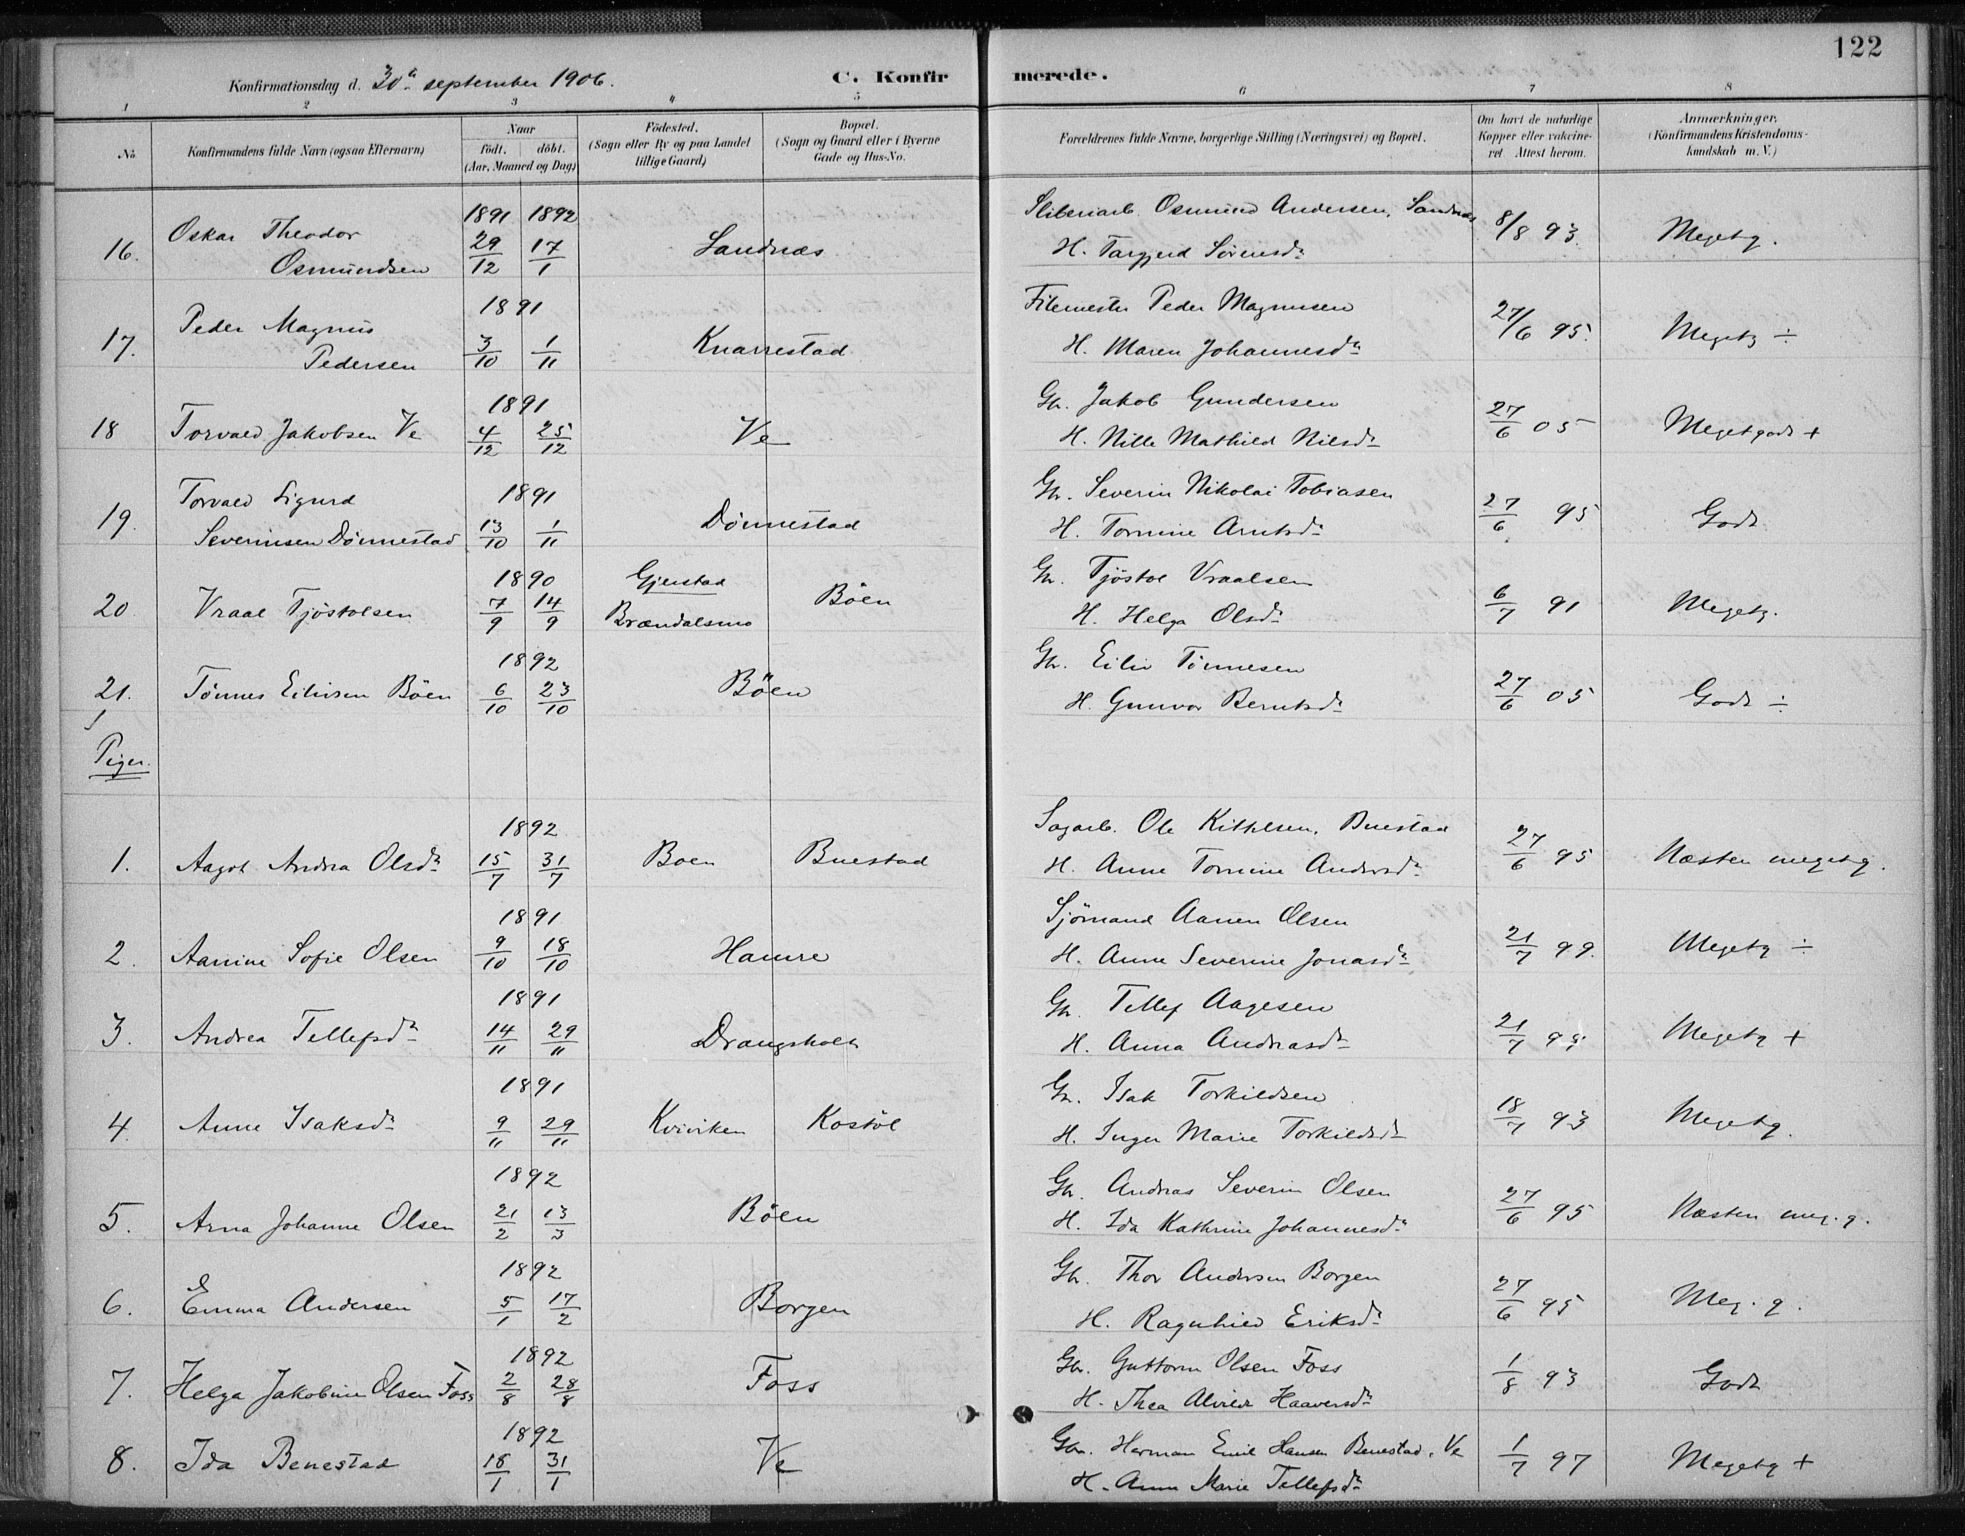 122
Konfirmationsdag d. 30te september 1906.
C. Konfirmerede.
1 2 3 4 5 6 7 8
No.
Konfirmandens fulde Navn (ogsaa Efternavn)
Naar
født. døbt.
(Aar, Maaned og Dag)
Fødested.
(Sogn eller By og paa Landet
tillige Gaard)
Bopæl.
(Sogn og Gaard eller i Byerne
Gade og Hus-No.
Forældrenes fulde Navne, borgerlige Stilling (Næringsvei) og Bopæl.
Om havt de naturlige
Kopper eller vakcine-
ret Attest herom.
Anmærkninger.
(Konfirmandens Kristendoms-
kundskab m. V.)
1891 1892 Sliberiarb. Osmund Andersen, Sandnæs
16. Oskar Theodor Osmundsen 29/12 17/1 Sandnæs 8/8 93 Megetg.
H. Targjerd Sørensdr
1891 Filemester Peder Magnusen
17. Peder Magnus Pedersen 3/10 1/11 Knarrestad 27/6 95. Megetg ÷
H. Maren Johannesdr
1891 Gbr. Jakob Gundersen
18 Torvald Jakobsen Ve 4/12 25/12 Ve 27/6 05 Megetgodt +
H. Nille Mathild Nilsdr
Torvald Sigurd 1891 Gbr. Severin Nikolai Tobiasen
19. Severinsen Dønnestad 13/10 1/11 Dønnestad 27/6 95 Godt
H. Tomine Arntsdr
1890 Gjerstad Gbr. Tjøstol Vraalsen
20. Vraal Tjøstolsen 7/9 14/9 Brændalsmo Böen 6/7 91 Megetg.
H. Helga Olsdr
1892 Gbr. Eiliv Tönnesen
21. Tönnes Eilivsen Böen 6/10 23/10 Böen 27/6 05 Godt ÷
H. Gunvor Berntsdr
Piger.
1892 Sagarb. Ole Kittelsen, Buestad
1. Aagot Andrea Olsdr 15/7 31/7 Boen Buestad 27/6 95 Næsten megetg.
H. Anne Tomine Andersdr
1891 Sjömand Aanen Olsen
2. Aanine Sofie Olsen 9/10 18/10 Hamre 21/7 99. Megetg ÷
H. Anne Severine Jonasdr
1891 Gbr. Tellef Aagesen
3. Andrea Tellefsdr 14/11 29/11 Drangsholt 21/7 99 Megetg +
H. Anna Andreasdr
1891 Gbr. Isak Torkildsen
4. Anne Isaksdr 9/11 29/11 Kviviken Kostöl 18/7 93 Megetg.
H. Inger Marie Torkildsdr
1892 Gbr. Andreas Severin Olsen
5. Arna Johanne Olsen 21/2 13/3 Böen 27/6 95 Næsten meg. g.
H. Ida Kathrine Johannesdr
1892 Gbr. Thor Andersen Borgen
6. Emma Andersen 5/1 17/2 Borgen 27/6 95 Meg. g.
H. Ragnhild Eriksdr
1892 Gbr. Guttorm Olsen Foss
7. Helga Jakobine Olsen Foss 2/8 28/8 Foss 1/8 93 Godt
H. Thea Alvilde Haaversdr
1892 Gbr. Herman Emil Hansen Benestad, Ve
8. Ida Benestad 18/1 31/1 Ve 1/7 97 Megetg +
H. Anne Marie Tellefsdr